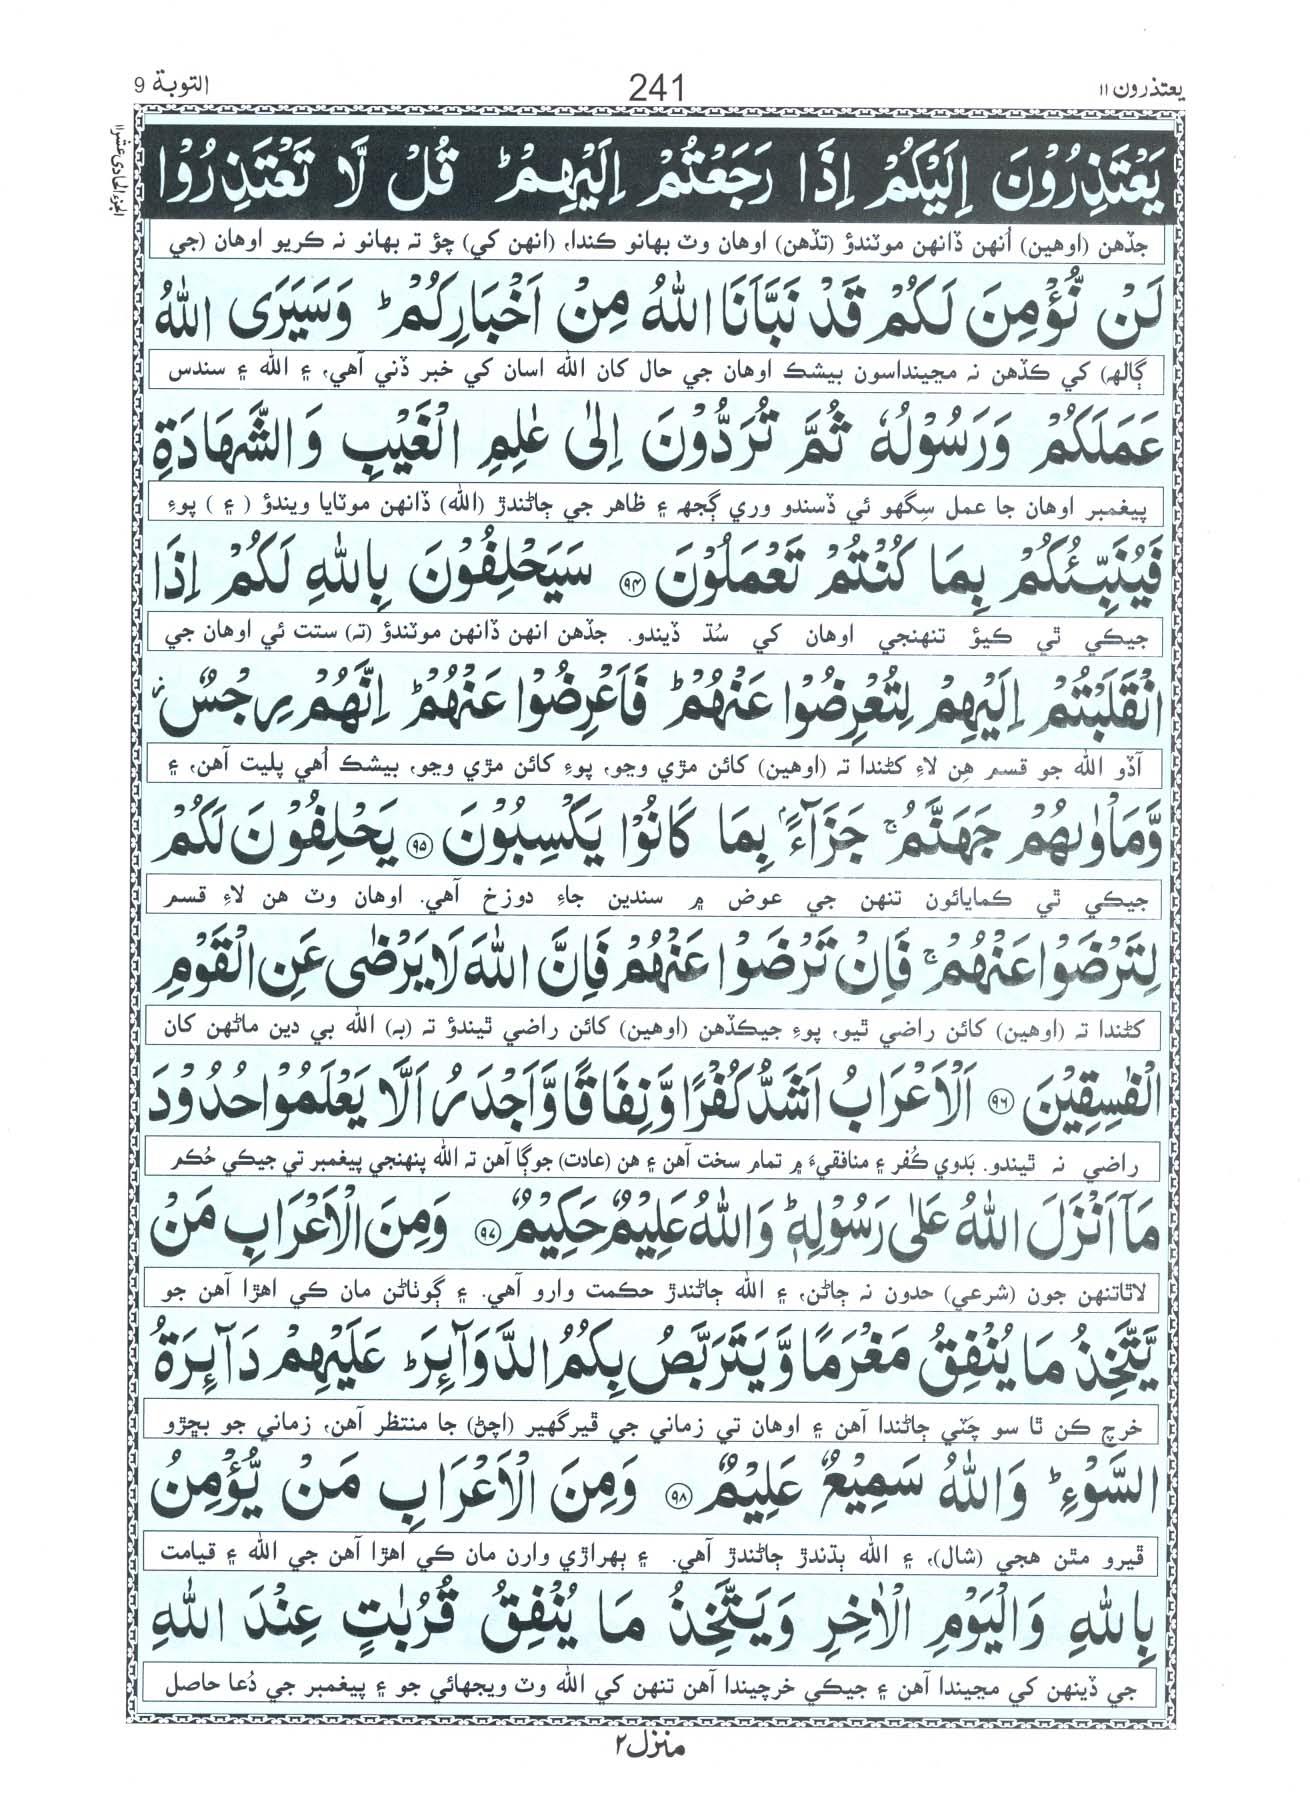 يعتذرون ١١
241
التوبة 9
الجزء الحادی عشر ١١
يَعْتَذِرُوْنَ اِلَيْكُمْ اِذَا رَجَعْتُمْ اِلَيْهِمْ ؕ قُلْ لَّا تَعْتَذِرُوْا
جڏهن (اوهين) اُنهن ڏانهن موٽندؤ (تڏهن) اوهان وٽ بهانو ڪندا، (انهن کي) چؤ ته بهانو نہ ڪريو اوهان (جي
لَنْ نُّؤْمِنَ لَكُمْ قَدْ نَبَّاَنَا اللّٰهُ مِنْ اَخْبَارِكُمْ ؕ وَسَيَرَى اللّٰهُ
ڳالھ) کي ڪڏهن نہ مڃينداسون بيشڪ اوهان جي حال کان الله اسان کي خبر ڏني آهي، ۽ الله ۽ سندس
عَمَلَكُمْ وَرَسُوْلُهٗ ثُمَّ تُرَدُّوْنَ اِلٰى عٰلِمِ الْغَيْبِ وَالشَّهَادَةِ
پيغمبر اوهان جا عمل سِگهو ئي ڏسندو وري ڳجھ ۽ ظاهر جي ڄاڻندڙ (الله) ڏانهن موٽايا ويندؤ ( ۽ ) پوءِ
فَيُنَبِّئُكُمْ بِمَا كُنْتُمْ تَعْمَلُوْنَ ﴿۹۴﴾ سَيَحْلِفُوْنَ بِاللّٰهِ لَكُمْ اِذَا
جيڪي ٿي ڪيؤ تنهنجي اوهان کي سُڌ ڏيندو. جڏهن انهن ڏانهن موٽندؤ (تہ) ستت ئي اوهان جي
انْقَلَبْتُمْ اِلَيْهِمْ لِتُعْرِضُوْا عَنْهُمْ ؕ فَاَعْرِضُوْا عَنْهُمْ ؕ اِنَّهُمْ رِجْسٌ ز
آڏو الله جو قسم هِن لاءِ کڻندا تہ (اوهين) کائن مڙي وڃو، پوءِ کائن مڙي وڃو، بيشڪ اُهي پليت آهن، ۽
وَّمَاْوٰىهُمْ جَهَنَّمُ ۚ جَزَآءًۢ بِمَا كَانُوْا يَكْسِبُوْنَ ﴿۹۵﴾ يَحْلِفُوْنَ لَكُمْ
جيڪي ٿي ڪمايائون تنهن جي عوض ۾ سندين جاءِ دوزخ آهي. اوهان وٽ هن لاءِ قسم
لِتَرْضَوْا عَنْهُمْ ۚ فَاِنْ تَرْضَوْا عَنْهُمْ فَاِنَّ اللّٰهَ لَا يَرْضٰى عَنِ الْقَوْمِ
کڻندا تہ (اوهين) کائن راضي ٿيو، پوءِ جيڪڏهن (اوهين) کائن راضي ٿيندؤ تہ (بہ) الله بي دين ماڻهن کان
الْفٰسِقِيْنَ ﴿۹۶﴾ اَلْاَعْرَابُ اَشَدُّ كُفْرًا وَّنِفَاقًا وَّاَجْدَرُ اَلَّا يَعْلَمُوْا حُدُوْدَ
راضي نہ ٿيندو. بَدوي ڪُفر ۽ منافقيءَ ۾ تمام سخت آهن ۽ هن (عادت) جوڳا آهن تہ الله پنهنجي پيغمبر تي جيڪي حُڪم
مَآ اَنْزَلَ اللّٰهُ عَلٰى رَسُوْلِهٖ ؕ وَاللّٰهُ عَلِيْمٌ حَكِيْمٌ ﴿۹۷﴾ وَمِنَ الْاَعْرَابِ مَنْ
لاٿاتنهن جون (شرعي) حدون نہ ڄاڻن، ۽ الله ڄاڻندڙ حڪمت وارو آهي. ۽ ڳوٺاڻن مان ڪي اهڙا آهن جو
يَّتَّخِذُ مَا يُنْفِقُ مَغْرَمًا وَّيَتَرَبَّصُ بِكُمُ الدَّوَآئِرَ ؕ عَلَيْهِمْ دَآئِرَةُ
خرچ ڪن ٿا سو چَٽي ڄاڻندا آهن ۽ اوهان تي زماني جي ڦيرگهير (اچڻ) جا منتظر آهن، زماني جو بڇڙو
السَّوْءِ ؕ وَاللّٰهُ سَمِيْعٌ عَلِيْمٌ ﴿۹۸﴾ وَمِنَ الْاَعْرَابِ مَنْ يُّؤْمِنُ
ڦيرو مٿن هجي (شال)، ۽ الله ٻڌندڙ ڄاڻندڙ آهي. ۽ ٻهراڙي وارن مان ڪي اهڙا آهن جي الله ۽ قيامت
بِاللّٰهِ وَالْيَوْمِ الْاٰخِرِ وَيَتَّخِذُ مَا يُنْفِقُ قُرُبٰتٍ عِنْدَ اللّٰهِ
جي ڏينهن کي مڃيندا آهن ۽ جيڪي خرچيندا آهن تنهن کي الله وٽ ويجهائي جو ۽ پيغمبر جي دُعا حاصل
منزل ٢